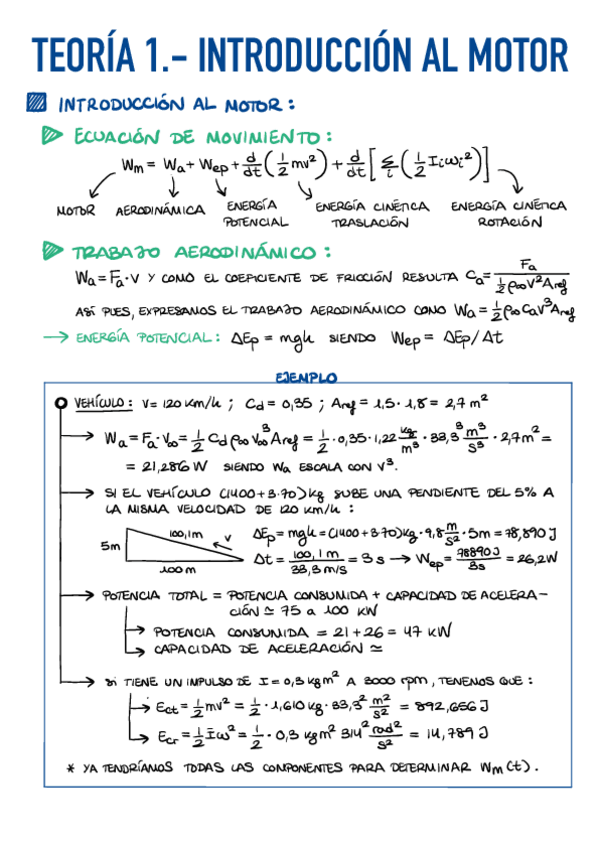 TEORÍA 1.- INTRODUCCIÓN AL MOTOR
INTRODUCCIÓN AL MOTOR:
ECUACIÓN DE MOVIMIENTO:
Wm = Wa + Wep + d/dt (1/2 mv²) + d/dt [Σi (1/2 Ii ωi²)]
MOTOR AERODINÁMICA ENERGÍA POTENCIAL ENERGÍA CINÉTICA TRASLACIÓN ENERGÍA CINÉTICA ROTACIÓN
TRABAJO AERODINÁMICO:
Wa = Fa · v Y COMO EL COEFICIENTE DE FRICCIÓN RESULTA Ca = Fa / (1/2 ρ∞ V² Aref)
ASÍ PUES, EXPRESAMOS EL TRABAJO AERODINÁMICO COMO Wa = 1/2 ρ∞ Ca V³ Aref
→ ENERGÍA POTENCIAL: ΔEp = mgh SIENDO Wep = ΔEp/Δt
EJEMPLO
VEHÍCULO: V = 120 km/h ; Cd = 0,35 ; Aref = 1,5 · 1,8 = 2,7 m²
→ Wa = Fa · V∞ = 1/2 Cd ρ∞ V∞³ Aref = 1/2 · 0,35 · 1,22 kg/m³ · 33,3³ m³/s³ · 2,7 m² =
= 21,286 W SIENDO Wa ESCALA CON V³.
→ SI EL VEHÍCULO (1400 + 3·70) kg SUBE UNA PENDIENTE DEL 5% A
LA MISMA VELOCIDAD DE 120 km/h :
5m 100,1m v 100m
ΔEp = mgh = (1400 + 3·70) kg · 9,8 m/s² · 5m = 78,890 J
Δt = 100,1 m / 33,3 m/s = 3 s → Wep = 78890 J / 3s = 26,2 W
→ POTENCIA TOTAL = POTENCIA CONSUMIDA + CAPACIDAD DE ACELERA-
CIÓN ≃ 75 a 100 KW
→ POTENCIA CONSUMIDA = 21 + 26 = 47 KW
→ CAPACIDAD DE ACELERACIÓN ≃
→ SI TIENE UN IMPULSO DE I = 0,3 kg m² A 3000 rpm, TENEMOS QUE :
→ Ect = 1/2 mv² = 1/2 · 1,610 kg · 33,3² m²/s² = 892,656 J
→ Ecr = 1/2 Iω² = 1/2 · 0,3 kg m² 314² rad²/s² = 14,789 J
* YA TENDRÍAMOS TODAS LAS COMPONENTES PARA DETERMINAR Wm(t).